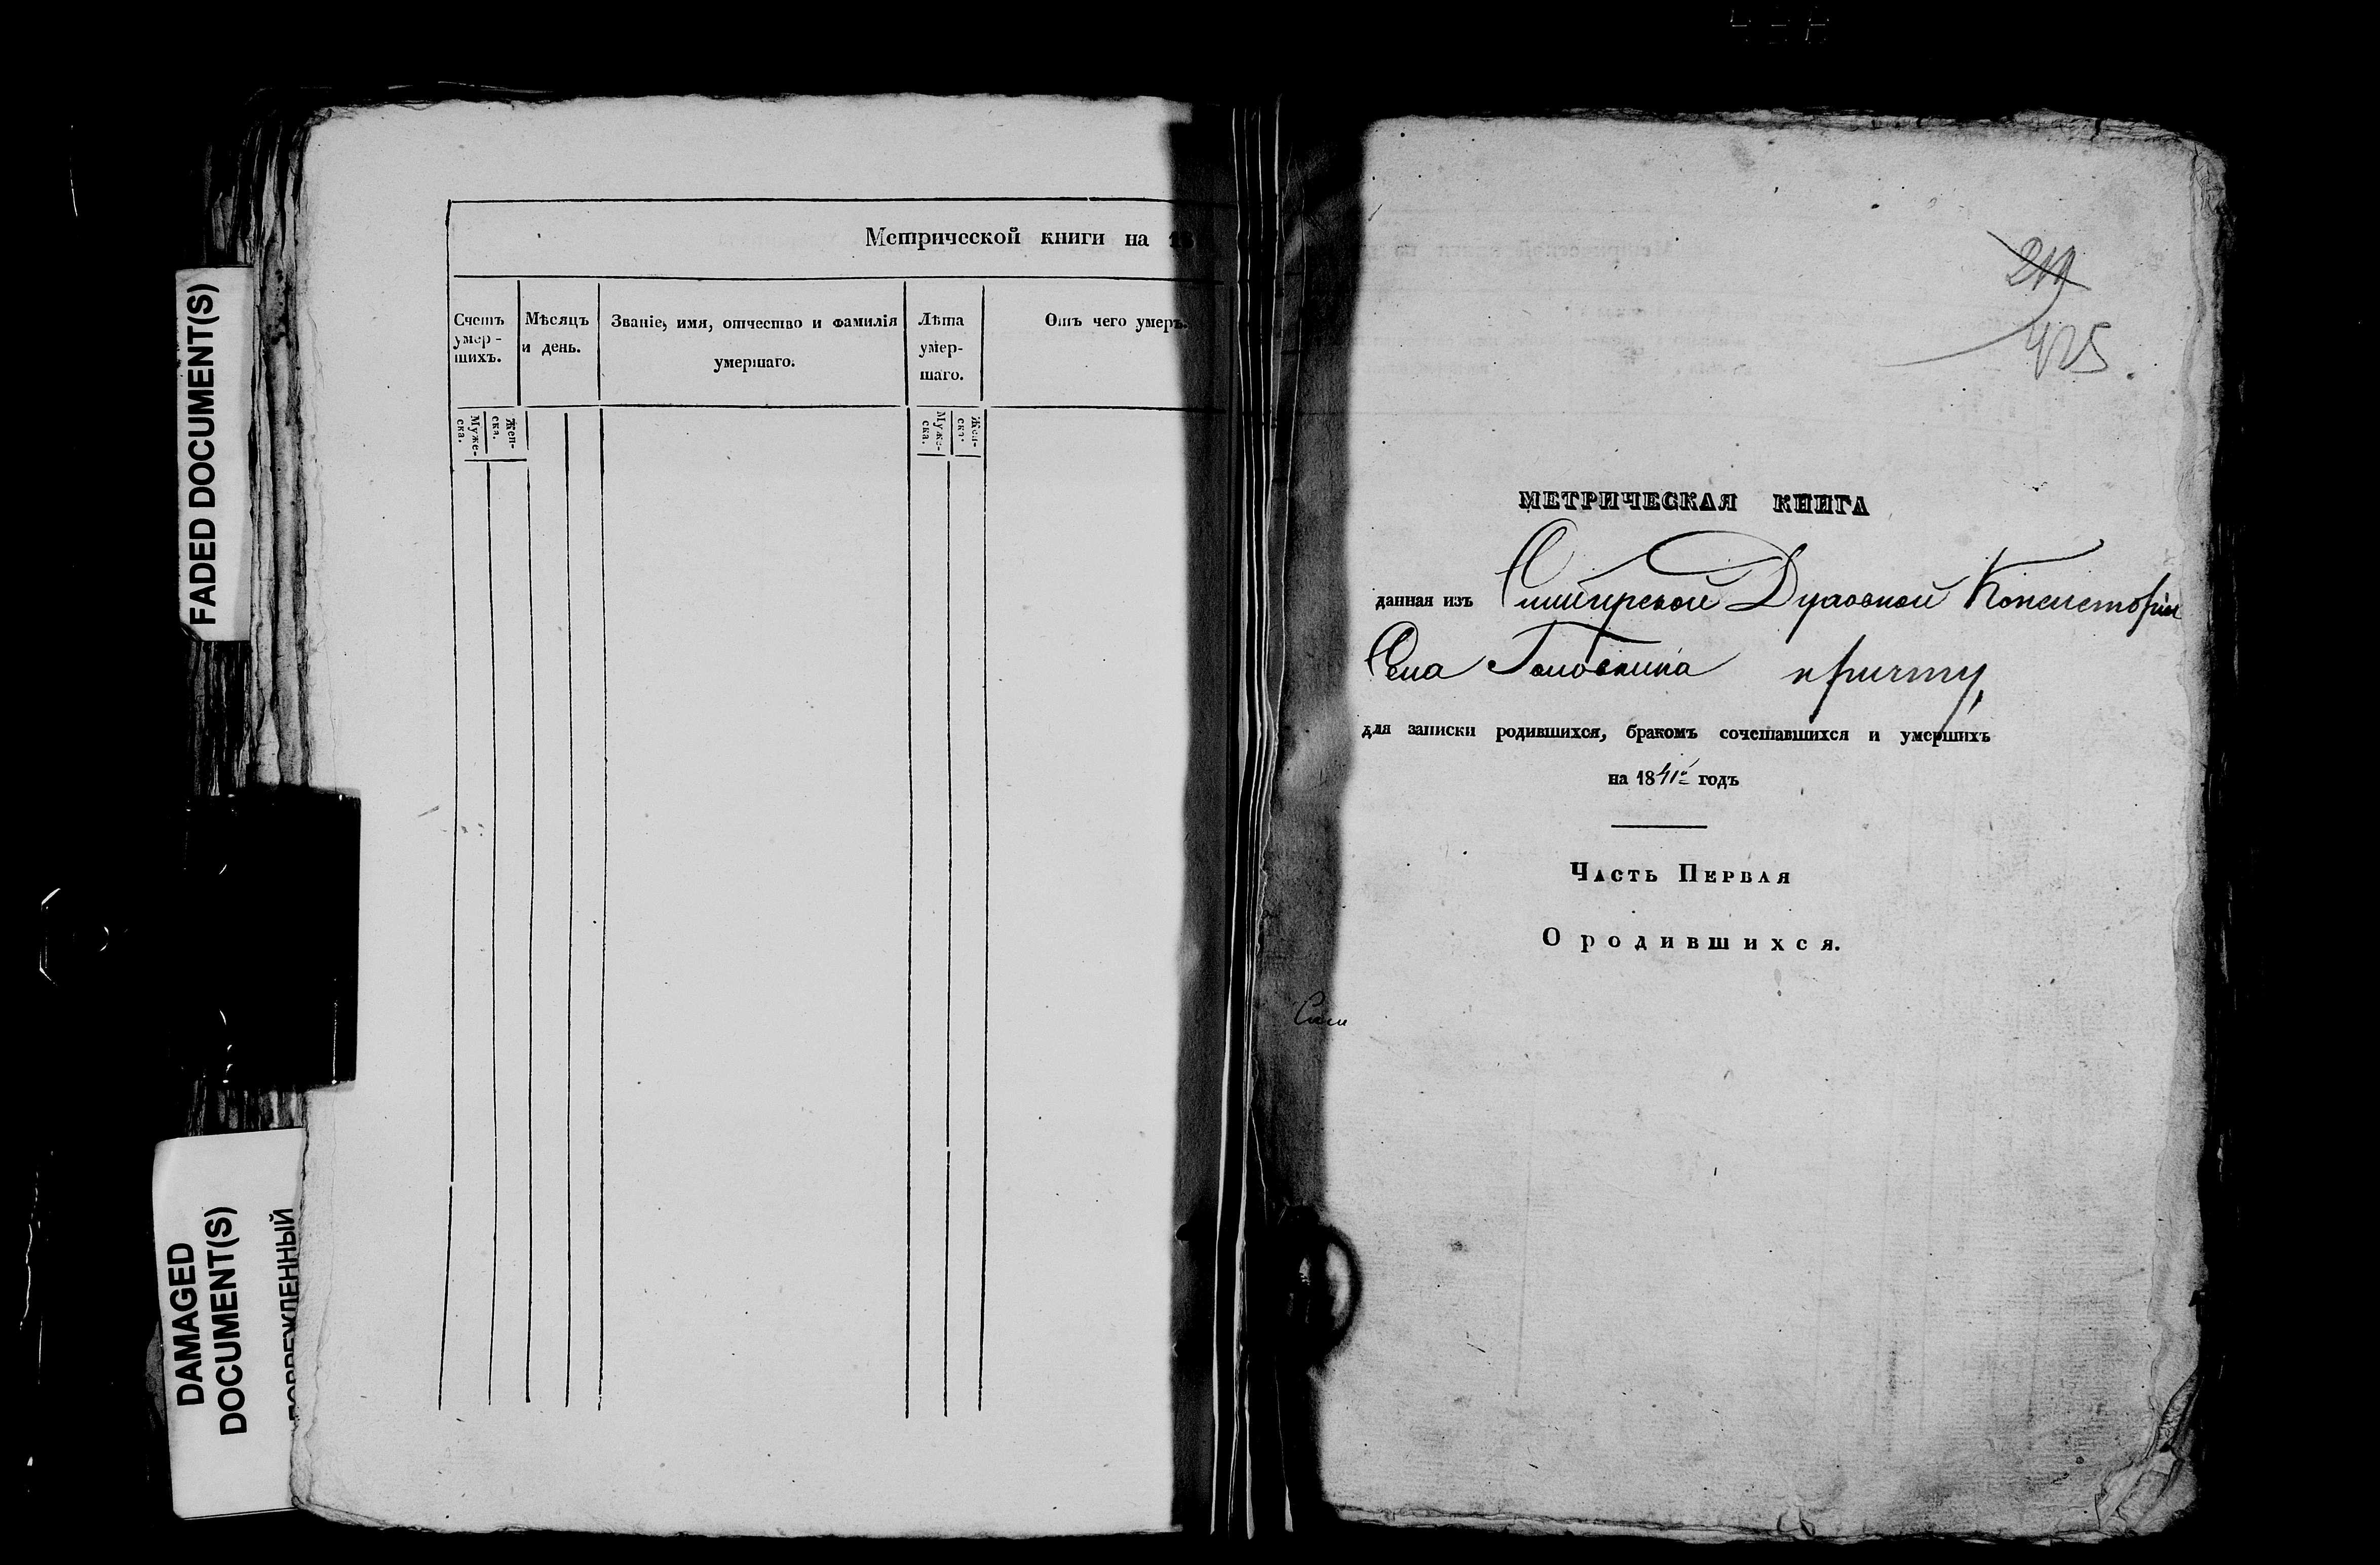 FADED DOCUMENT(S)
DAMAGED
DOCUMENT(S)
Метрической книги на 18
Счетъ умер-шихъ.
Мѣсяцъ и день.
Званіе, имя, отчество и фамилія умершаго.
Лѣта умер-шаго.
Отъ чего умеръ.
Муже-ска.
Жен-ска.
Муже-ска.
Жен-ска.
211
425.
МЕТРИЧЕСКАЯ КНИГА
данная изъ Симбирской Духовной Консисторіи
Села Головкина причту,
для записки родившихся, бракомъ сочетавшихся и умершихъ
на 1841й годъ
Часть Первая
О родившихся.